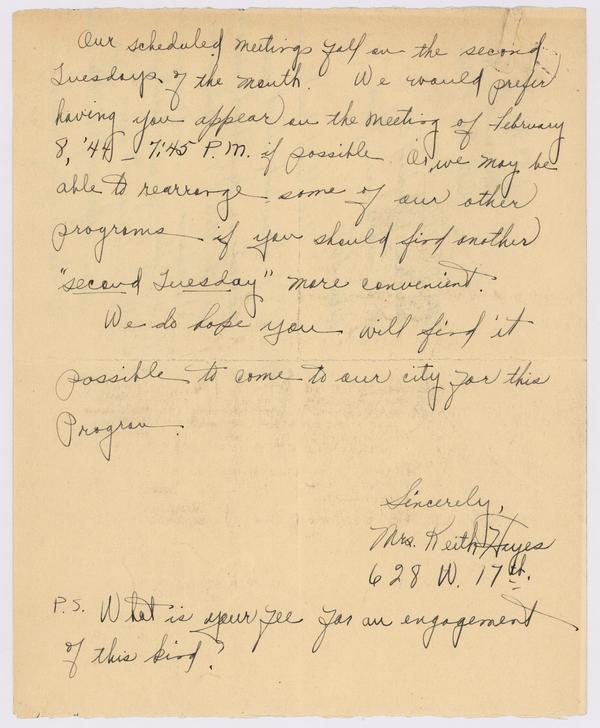 Our scheduled meetings fall on the second
Tuesdays of the month. We would prefer
having you appear on the meeting of February
8, '44 – 7:45 P.M. if possible. Or, we may be
able to rearrange some of our other
programs if you should find another
"second Tuesday" more convenient.
We do hope you will find it
possible to come to our city for this
Program.
Sincerely,
Mrs. Keith Hayes
628 W. 17th.
P.S. What is your fee for an engagement
of this kind?